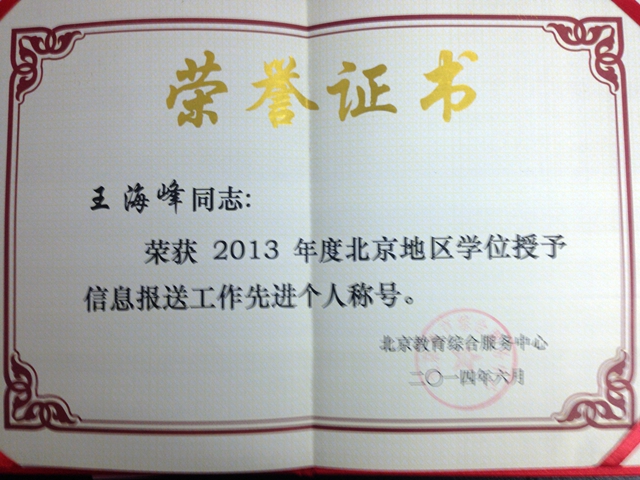 荣誉证书
王海峰同志:
荣获 2013 年度北京地区学位授予
信息报送工作先进个人称号。
北京教育综合服务中心
二〇一四年六月